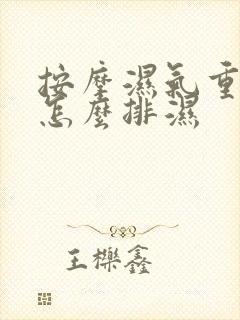 按摩濕氣重
怎麼排濕
王櫟鑫